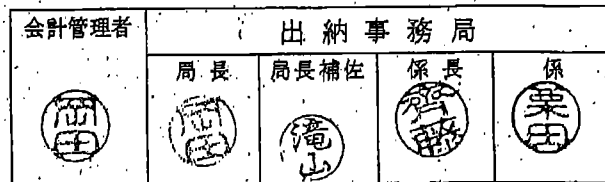 会計管理者 出納事務局
局長 局長補佐 係長 係
岡田 岡田 滝山 齊藤 栗田